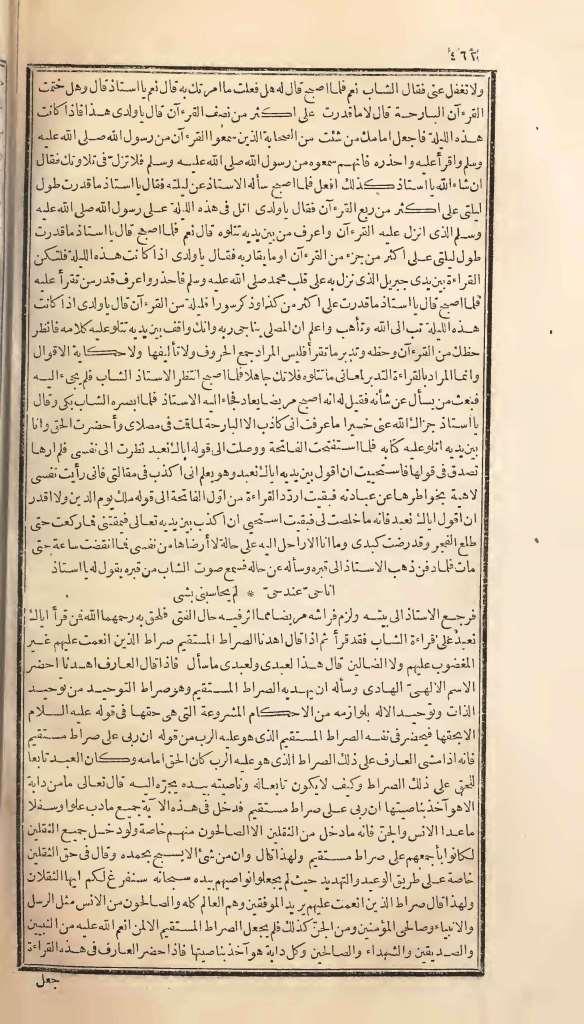 ٤٦٢
ولا تغفل عني فقال الشاب نعم فلما اصبح قال له هل فعلت ما امرتك به قال نعم يا استاذ قال وهل ختمت
القرءآن البارحة قال لا ما قدرت على اكثر من نصف القرءآن قال يا ولدي هذا فاذا كانت
هذه الليلة فاجعل امامك من شئت من الصحابة الذين سمعوا القرءآن من رسول الله صلى الله عليه
وسلم واقرأ عليه واحذره فانهم سمعوه من رسول الله صلى الله عليه وسلم فلا تزل في تلاوتك فقال
ان شاء الله يا استاذ كذلك افعل فلما اصبح سأله الاستاذ عن ليلته فقال يا استاذ ما قدرت طول
ليلتي على اكثر من ربع القرءآن فقال يا ولدي اتل في هذه الليلة على رسول الله صلى الله عليه
وسلم الذي انزل عليه القرءآن واعرف من بين يديه تتلوه قال نعم فلما اصبح قال يا استاذ ما قدرت
طول ليلتي على اكثر من جزء من القرءآن او ما يقاربه فقال يا ولدي اذا كانت هذه الليلة فلتكن
القراءة بين يدي جبريل الذي نزل به على قلب محمد صلى الله عليه وسلم فاحذر واعرف قدر من تقرأ عليه
فلما اصبح قال يا استاذ ما قدرت على اكثر من كذا وذكر سورا قليلة من القرءآن قال يا ولدي اذا كانت
هذه الليلة تب الى الله وتأهب واعلم ان المصلي يناجي ربه وانك واقف بين يديه تتلو عليه كلامه فانظر
حظك من القرءآن وحظه وتدبر ما تقرأ فليس المراد جمع الحروف ولا تأليفها ولا حكاية الاقوال
وانما المراد بالقراءة التدبر لمعاني ما تتلوه فلا تك جاهلا فلما اصبح انتظر الاستاذ الشاب فلم يجيء اليه
فبعث من يسأل عن شأنه فقيل له انه اصبح مريضا يعاد فجاء اليه الاستاذ فلما ابصره الشاب بكى وقال
يا استاذ جزاك الله عني خيرا ما عرفت اني كاذب الا البارحة لما قمت في مصلاي واحضرت الحق وانا
بين يديه اتلو عليه كتابه فلما استفتحت الفاتحة ووصلت الى قوله اياك نعبد نظرت الى نفسي فلم ارها
تصدق في قولها فاستحييت ان اقول بين يديه اياك نعبد وهو يعلم اني اكذب في مقالتي فاني رأيت نفسي
لاهية بخواطرها عن عبادته فبقيت اردد القراءة من اول الفاتحة الى قوله ملك يوم الدين ولا اقدر
ان اقول اياك نعبد فانه ما خلصت لي فبقيت استحيي ان اكذب بين يديه تعالى فيمقتني فما ركعت حتى
طلع الفجر وقد رضت كبدي وما انا الا راحل اليه على حالة لا ارضاها من نفسي فما انقضت ساعة حتى
مات فلما دفن ذهب الاستاذ الى قبره وسأله عن حاله فسمع صوت الشاب من قبره يقول له يا استاذ
انا حيّ عند حيّ * لم يحاسبني بشي
فرجع الاستاذ الى بيته ولزم فراشه مريضا مما اثر فيه حال الفتى فلحق به رحمهما الله فمن قرأ اياك
نعبد على قراءة الشاب فقد قرأ ثم اذا قال اهدنا الصراط المستقيم صراط الذين انعمت عليهم غير
المغضوب عليهم ولا الضالين قال هذا لعبدي ولعبدي ما سأل فاذا قال العارف اهدنا احضر
الاسم الالهي الهادي وسأله ان يهديه الصراط المستقيم وهو صراط التوحيد من توحيد
الذات وتوحيد الاله بلوازمه من الاحكام المشروعة التي هي حقها في قوله عليه السلام
الا بحقها فيحضر في نفسه الصراط المستقيم الذي هو عليه الرب من قوله ان ربي على صراط مستقيم
فانه اذا مشى العارف على ذلك الصراط الذي هو عليه الرب كان الحق امامه وكان العبد تابعا
للحق على ذلك الصراط وكيف لا يكون تابعا له وناصيته بيده يجره اليه قال تعالى ما من دابة
الا هو آخذ بناصيتها ان ربي على صراط مستقيم فدخل في هذه الآية جميع ما دب علوا وسفلا
ما عدا الانس والجن فانه ما دخل من الثقلين الا الصالحون منهم خاصة ولو دخل جميع الثقلين
لكانوا بأجمعهم على صراط مستقيم ولهذا قال وان من شيء الا يسبح بحمده وقال في حق الثقلين
خاصة على طريق الوعيد والتهديد حيث لم يجعلوا نواصيهم بيده سبحانه سنفرغ لكم ايها الثقلان
ولهذا قال صراط الذين انعمت عليهم يريد الموفقين وهم العالم كله والصالحون من الانس مثل الرسل
والانبياء وصالحي المؤمنين ومن الجن كذلك فلم يجعل الصراط المستقيم الا لمن انعم الله عليه من النبيين
والصديقين والشهداء والصالحين وكل دابة هو آخذ بناصيتها فاذا احضر العارف في هذه القراءة
جعل